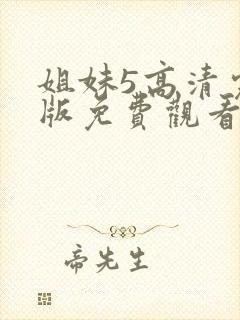 姐妹5高清完
版免費觀看
帝先生